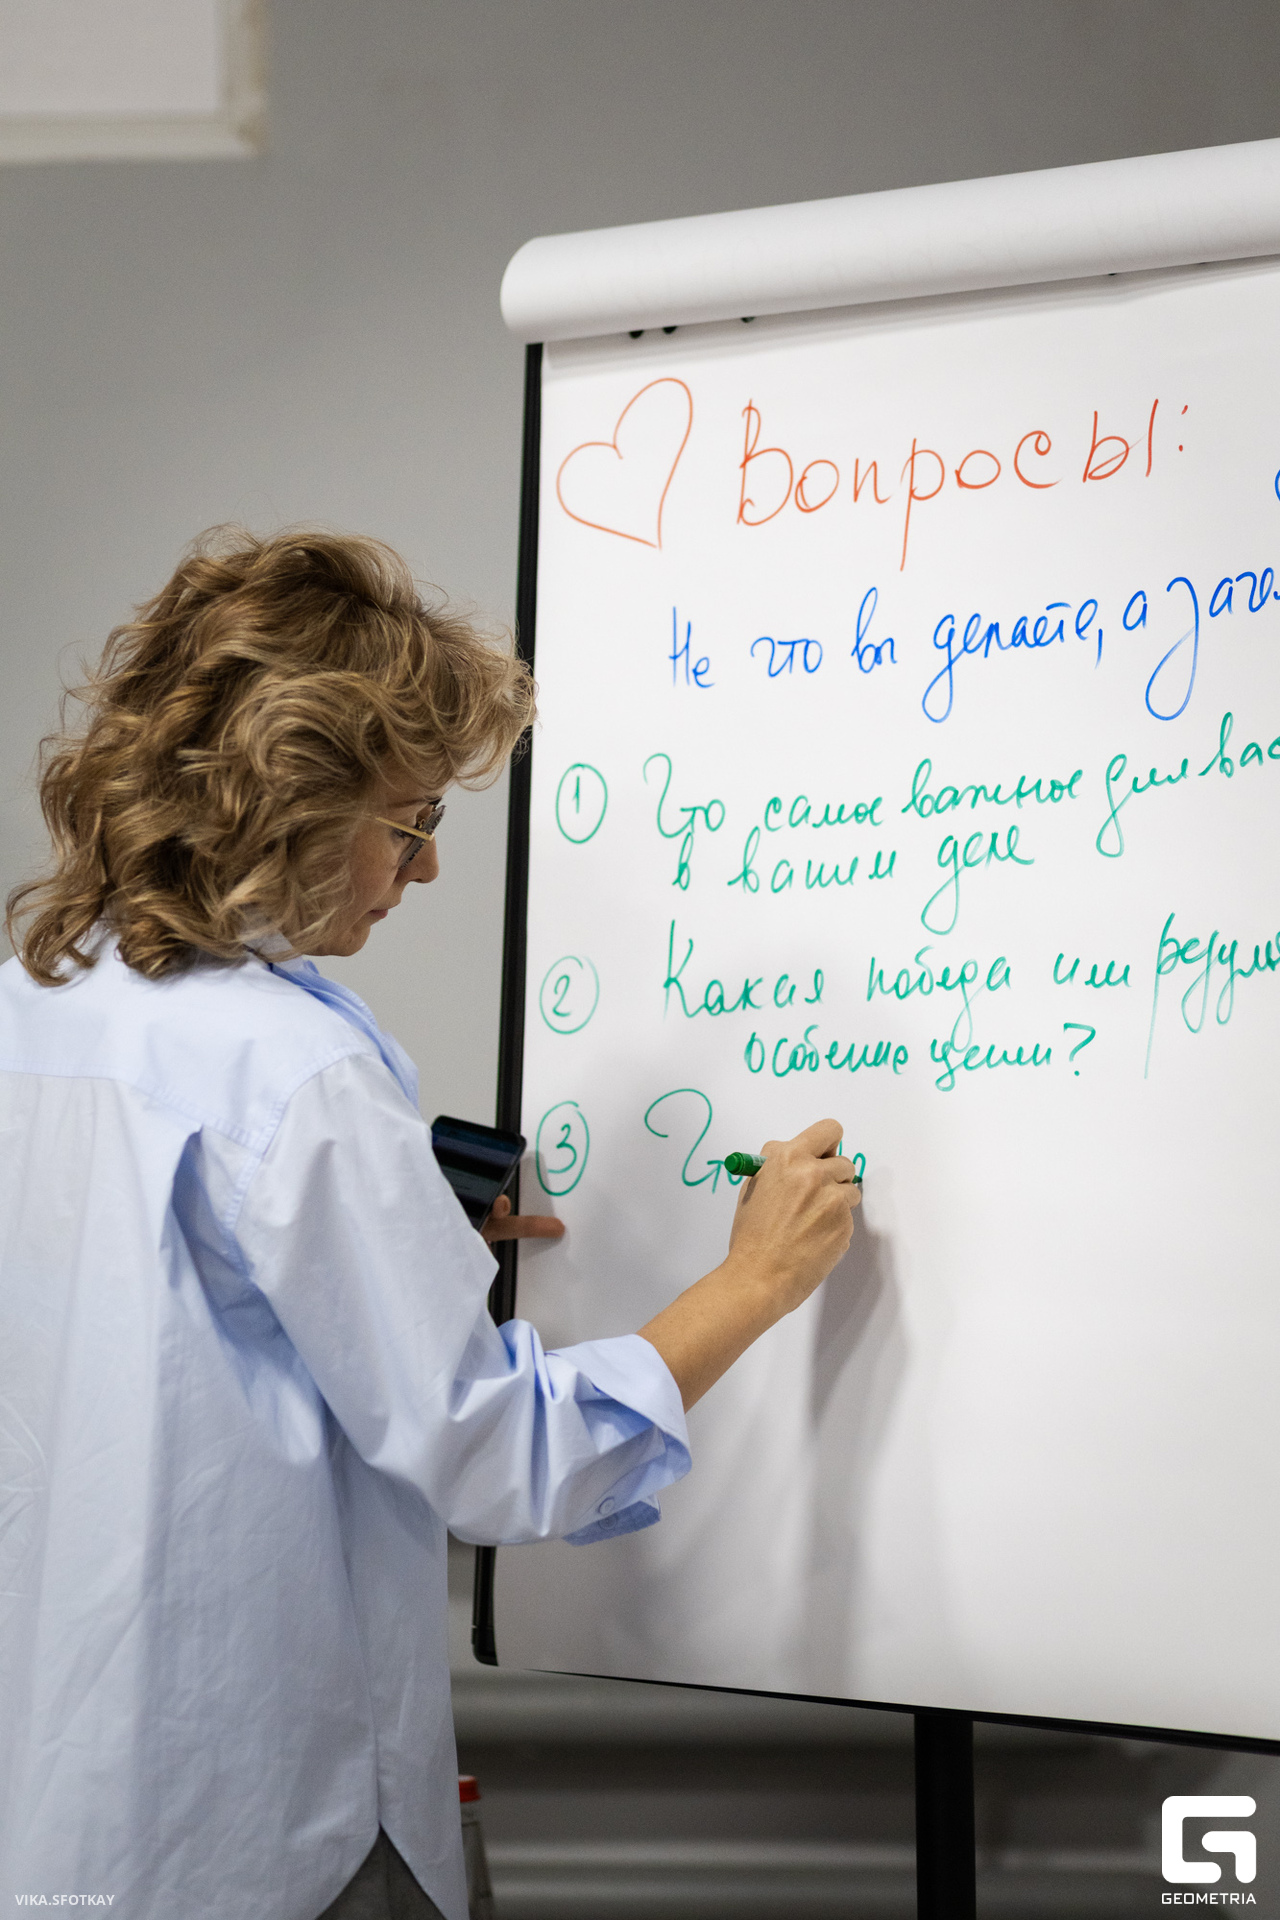 Вопросы:
Не что вы делаете, а
① Что самое важное для вас
в вашем деле
② Какая победа или
особенно ценны?
③ Что
VIKA.SFOTKAY
GEOMETRIA